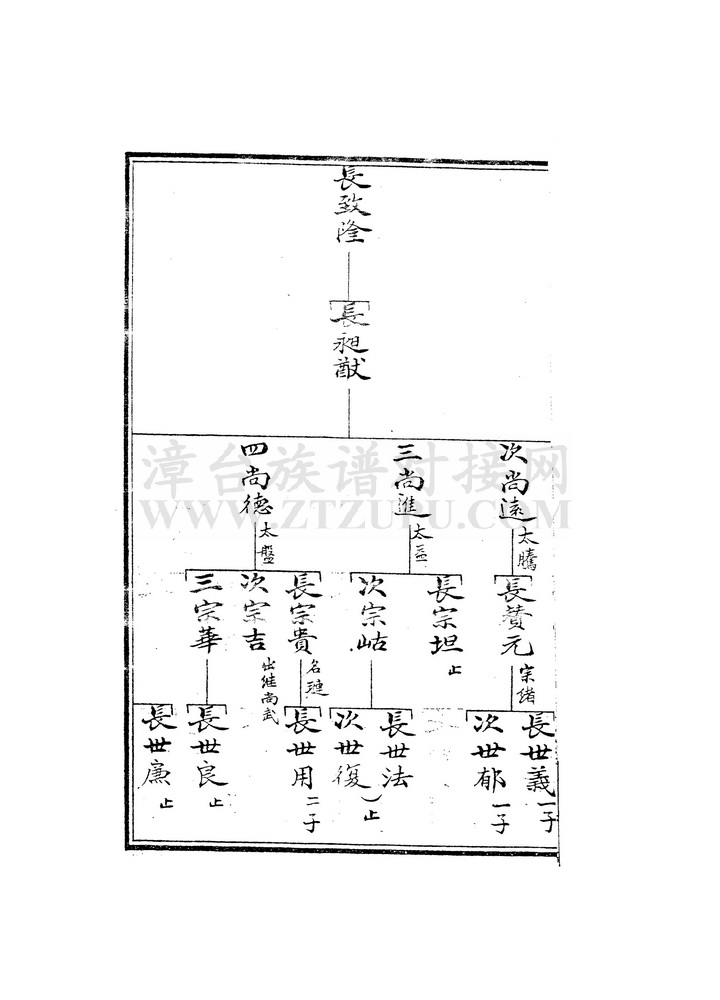 長致隆
長昶猷
次尚遠
太騰
三尚進
四尚德
太盤
長贊元
宗緒
長宗坦
止
次宗岵
長宗貴
名璉
次宗吉
出继尚武
三宗華
長世義
一子
次世郁
一子
長世法
次世復
止
長世用
二子
長世良
止
長世廉
止
漳台族谱对接网
WWW.ZTZUPU.COM